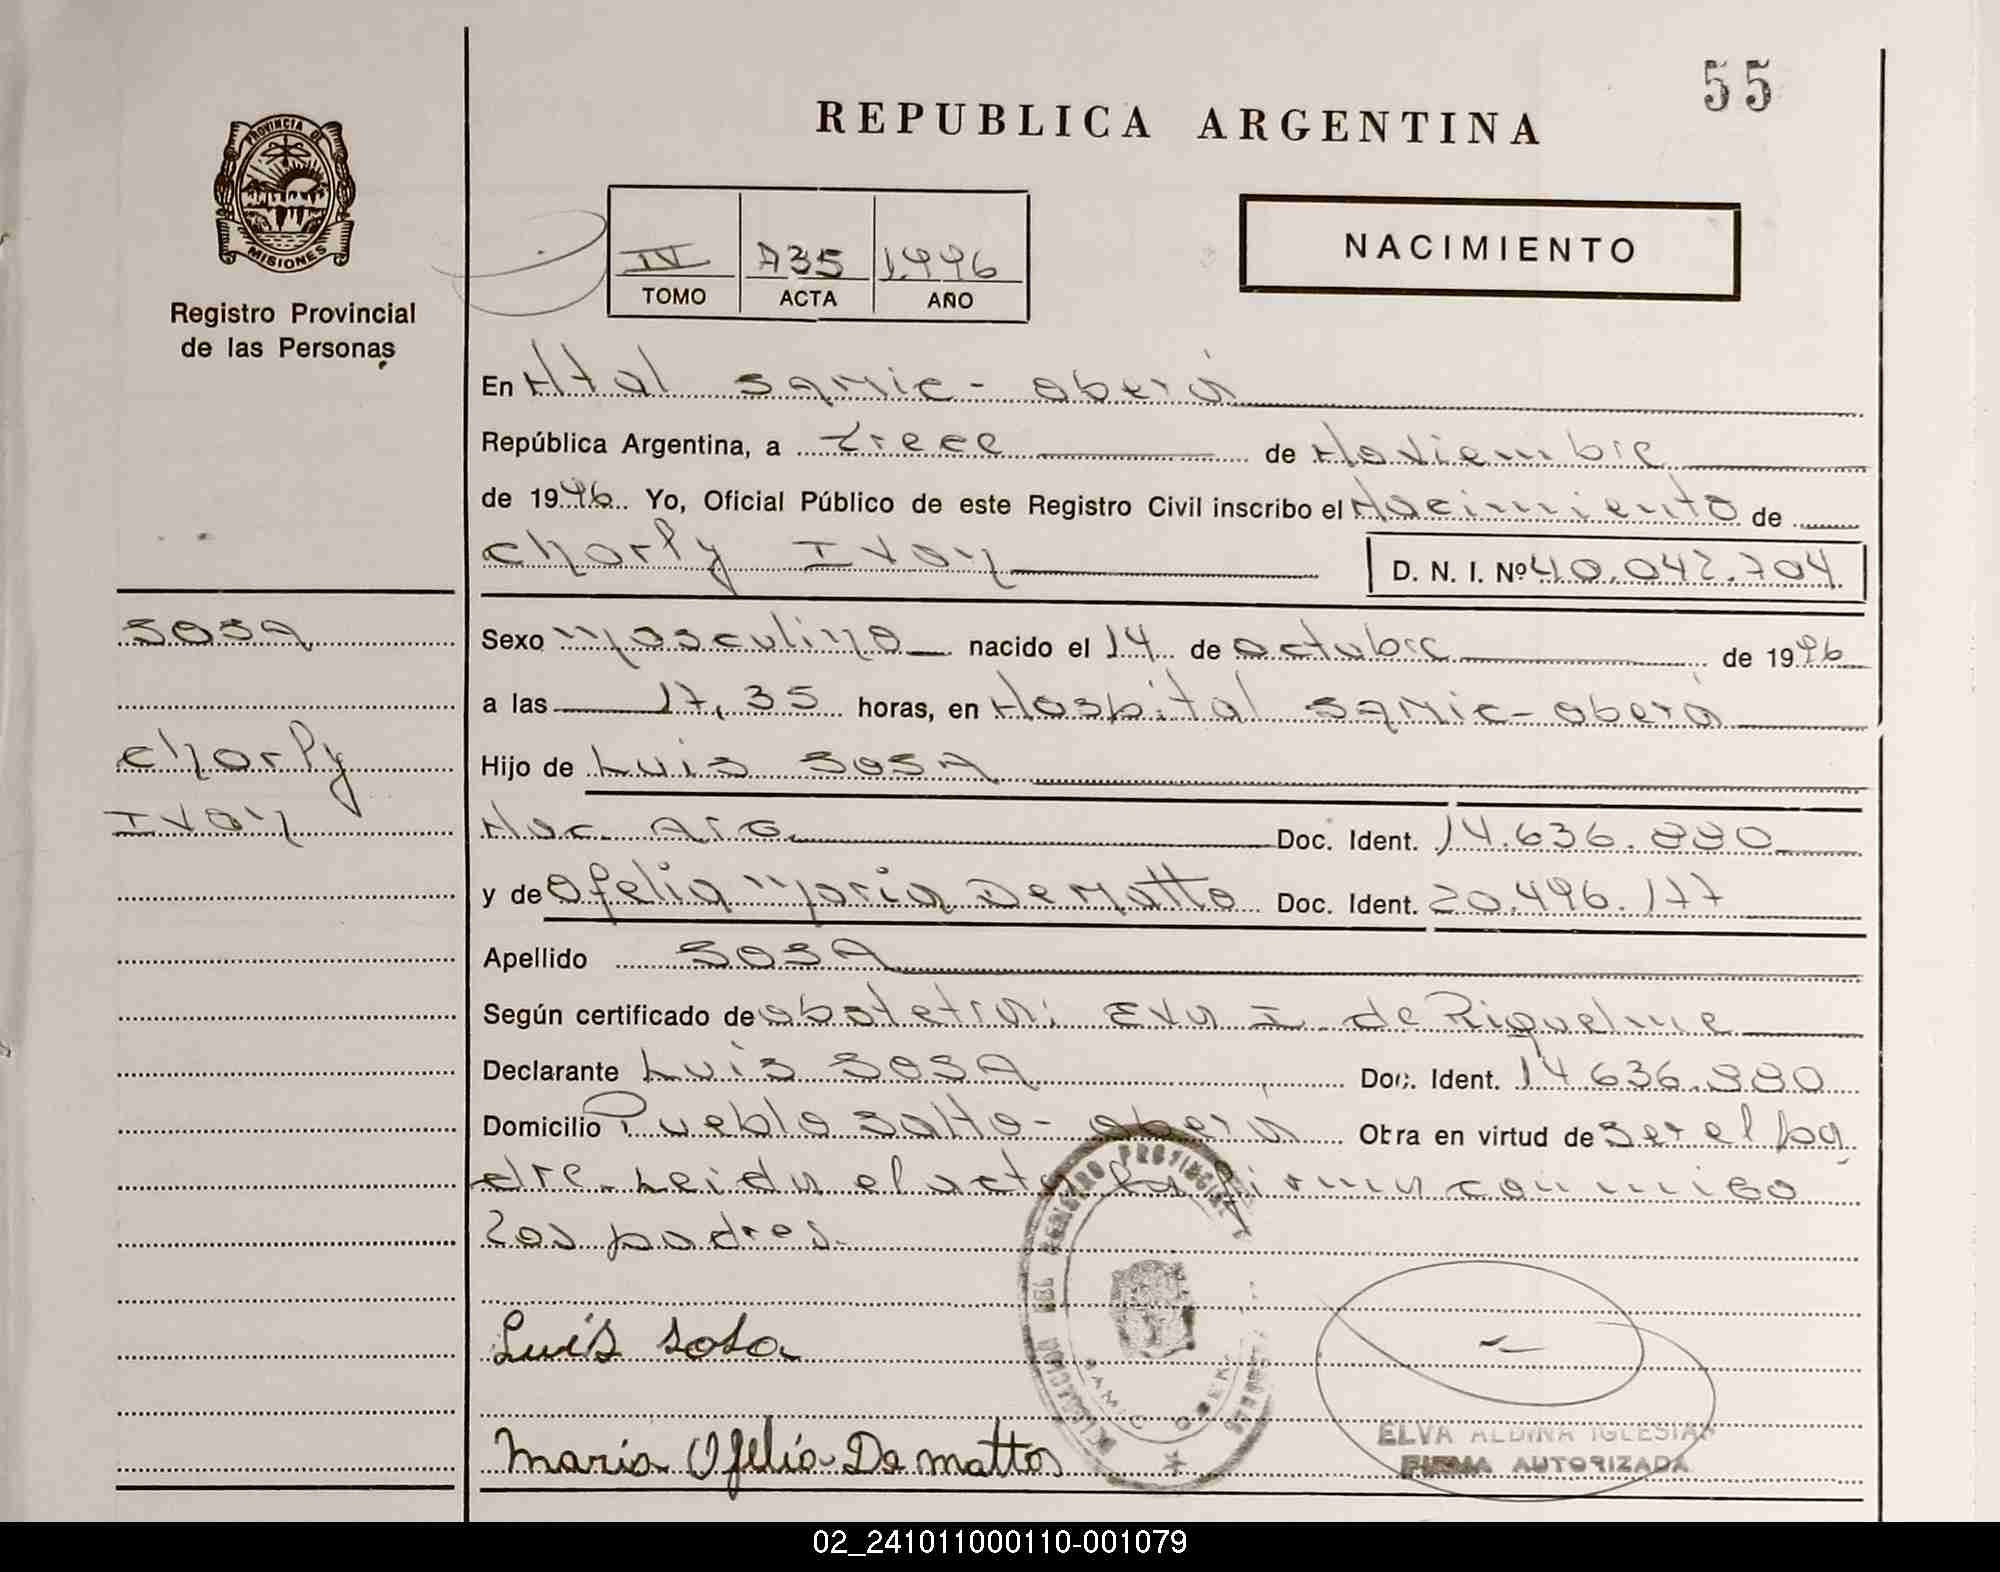 55
REPUBLICA ARGENTINA
PROVINCIA DE
MISIONES
Registro Provincial
de las Personas
IV A35 1996
TOMO ACTA AÑO
NACIMIENTO
En Htal SAMIC - Oberá
República Argentina, a trece de Noviembre
de 1996 Yo, Oficial Público de este Registro Civil inscribo el Nacimiento de
Charly Ivan D. N. I. Nº 40.042.704
SOSA
Charly
Ivan
Sexo Masculino nacido el 14 de octubre de 1996
a las 17,35 horas, en Hospital SAMIC - Oberá
Hijo de Luis SOSA
Nac. Arg. Doc. Ident. 14.636.880
y de Ofelia Maria De Matto Doc. Ident. 20.496.177
Apellido SOSA
Según certificado de Eva I. de Riquelme
Declarante Luis SOSA Doc. Ident. 14 636.880
Domicilio Pueblo Salto - Oberá Obra en virtud de ser el pa
dre - Leida el acta la firman conmigo
Los padres.
Luis Sosa
Maria Ofelia De mattos
DELEGACION DEL REGISTRO PROVINCIAL DE LAS PERSONAS
SAMIC OBERA
ELVA ALDINA IGLESIAS
FIRMA AUTORIZADA
02_241011000110-001079